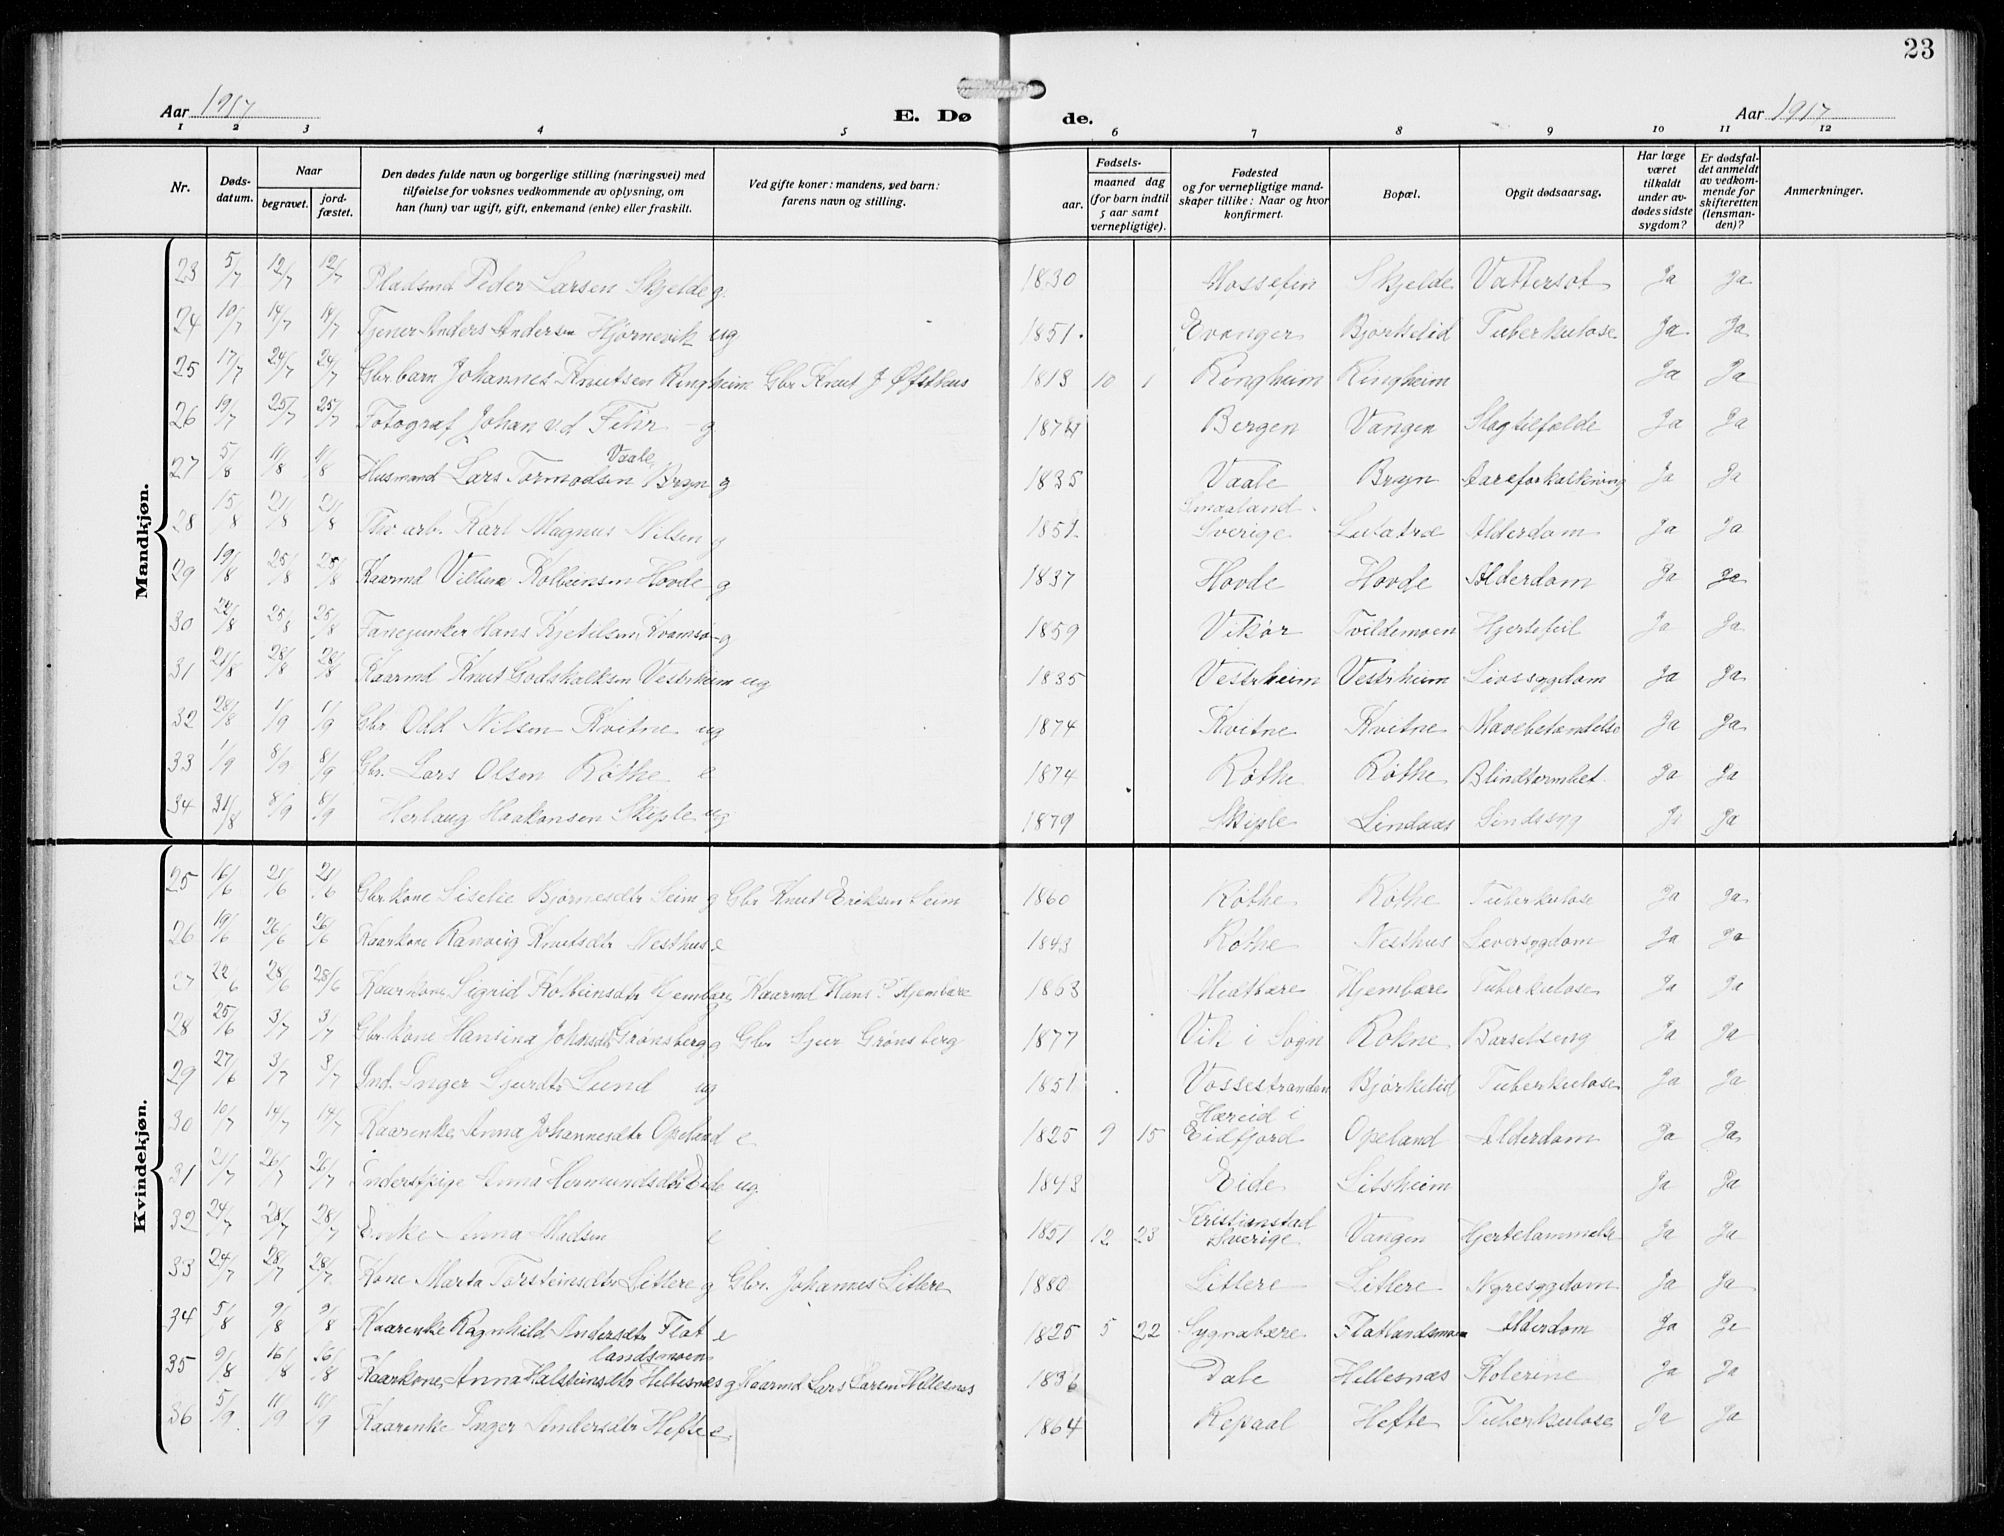 23
Aar 1917 E. Døde. Aar 1917
1 2 3 4 5 6 7 8 9 10 11 12
Nr.
Døds-
datum.
Naar
begravet.
jord-
fæstet.
Den dødes fulde navn og borgerlige stilling (næringsvei) med
tilføielse for voksnes vedkommende av oplysning, om
han (hun) var ugift, gift, enkemand (enke) eller fraskilt.
Ved gifte koner: mandens, ved barn:
farens navn og stilling.
Fødsels-
aar.
maaned dag
(for barn indtil
5 aar samt
vernepligtige).
Fødested
og for vernepligtige mand-
skaper tillike: Naar og hvor
konfirmert.
Bopæl.
Opgit dødsaarsag.
Har læge
været
tilkaldt
under av-
dødes sidste
sygdom?
Er dødsfal-
det anmeldt
av vedkom-
mende for
skifteretten
(lensman-
den)?
Anmerkninger.
Mandkjøn.
23 5/7 12/7 12/7 Pladsmd Peder Larsen Skjelde g. 1830 Skjelde Vattersot Ja Ja
24 10/7 14/7 14/7 Tjener Anders Andersen Hjørnevik ug 1851. Evanger Bjørkelid Tuberkulose Ja Ja
25 17/7 24/7 24/7 Gbr barn Johannes Knutsen Ringheim Gbr Knut J Øfsthus 1913 10 1 Ringheim Ringheim Ja Ja
26 19/7 25/7 25/7 Fotograf Johan v.d Fehr - g 1874 Bergen Vangen Slagtilfælde Ja Ja
Vaale
27 5/8 11/8 11/8 Husmand Lars Tormodsen Bryn g 1835 Vaale Bryn Aareforkalkning Ja Ja
28 15/8 21/8 21/8 arb. Karl Magnus Nilsen g 1851 Sverige Alderdom Ja Ja
29 19/8 25/8 25/8 Kaarmd Villum Kolbeinsen Hovde g 1837 Hovde Hovde Alderdom Ja Ja
30 22/8 25/8 25/8 Fanejunker Hans Kjetilsen Kvamsø - g 1859 Vikør Tvildemoen Hjertefeil Ja Ja
31 21/8 28/8 28/8 Kaarmd Knut Godskalksen Vestrheim ug 1835 Vestrheim Vestrheim Ja Ja
32 28/8 1/9 1/9 Gbr. Odd Nilsen Kvitne ug 1874 Kvitne Kvitne Mavebetændelse Ja Ja
33 1/9 8/9 8/9 Gbr. Lars Olsen Røthe e 1874 Røthe Røthe Blindtarmbet. Ja Ja
34 31/8 8/9 8/9 Herlaug Haakonsen Skiple ug 1879 Skiple Lindaas Sindssyg Ja Ja
Kvindekjøn.
25 16/6 21/6 21/6 Gbr kone Siselie Bjørnesdtr Seim g Gbr Knut Eriksen Seim 1860 Røthe Røthe Tuberkulose Ja Ja
26 19/6 26/6 26/6 Kaarkone Ranveig Knutsdtr Nesthus e 1843 Røthe Nesthus Leversygdom Ja Ja
27 22/6 28/6 28/6 Kaarkone Sigrid Kolbeinsdtr Hjembære g Kaarmd Hans P Hjembære 1863 Hjembære Tuberkulose Ja Ja
28 25/6 3/7 3/7 Gbr. kone Hansina Johansdtr Grønsberg g Gbr Sjur Grønsberg 1877 Vik i Sogn Rokne Barselseng Ja Ja
29 27/6 3/7 3/7 Ind. Inger Sjurdtr Lund ug 1851 Vossestranden Bjørkelid Tuberkulose Ja Ja
Hæreid i
30 10/7 14/7 14/7 Kaarenke Anna Johannesdtr Opeland e 1825 9 15 Eidfjord Opeland Alderdom Ja Ja
31 21/7 26/7 26/7 Inderstpige Anna Hermundsdtr Eide ug. 1843 Eide Litsheim Ja Ja
Kristianstad
32 24/7 28/7 28/7 Enke Anna Madsen e 1851 12 23 Sverige Vangen Hjertelammelse Ja Ja
33 24/7 28/7 28/7 Kone Marta Torsteinsdtr Litlere g Gbr. Johannes Litlere 1880 Litlere Litlere Nyresygdom Ja Ja
34 5/8 9/8 9/8 Kaarenke Ragnhild Andersdtr Flat e 1825 5 22 Sygnabære Flatlandsmoen Alderdom Ja Ja
landsmoen
35 9/8 16/8 16/8 Kaarkone Anna Halsteinsdtr Hellesnæs g Kaarmd Lars Larsen Hellesnæs 1836 Dale Hellesnæs Kolerine Ja Ja
36 5/9 11/9 11/9 Kaarenke Inger Andersdtr Hefte e. 1864 Repaal Hefte Tuberkulose Ja Ja